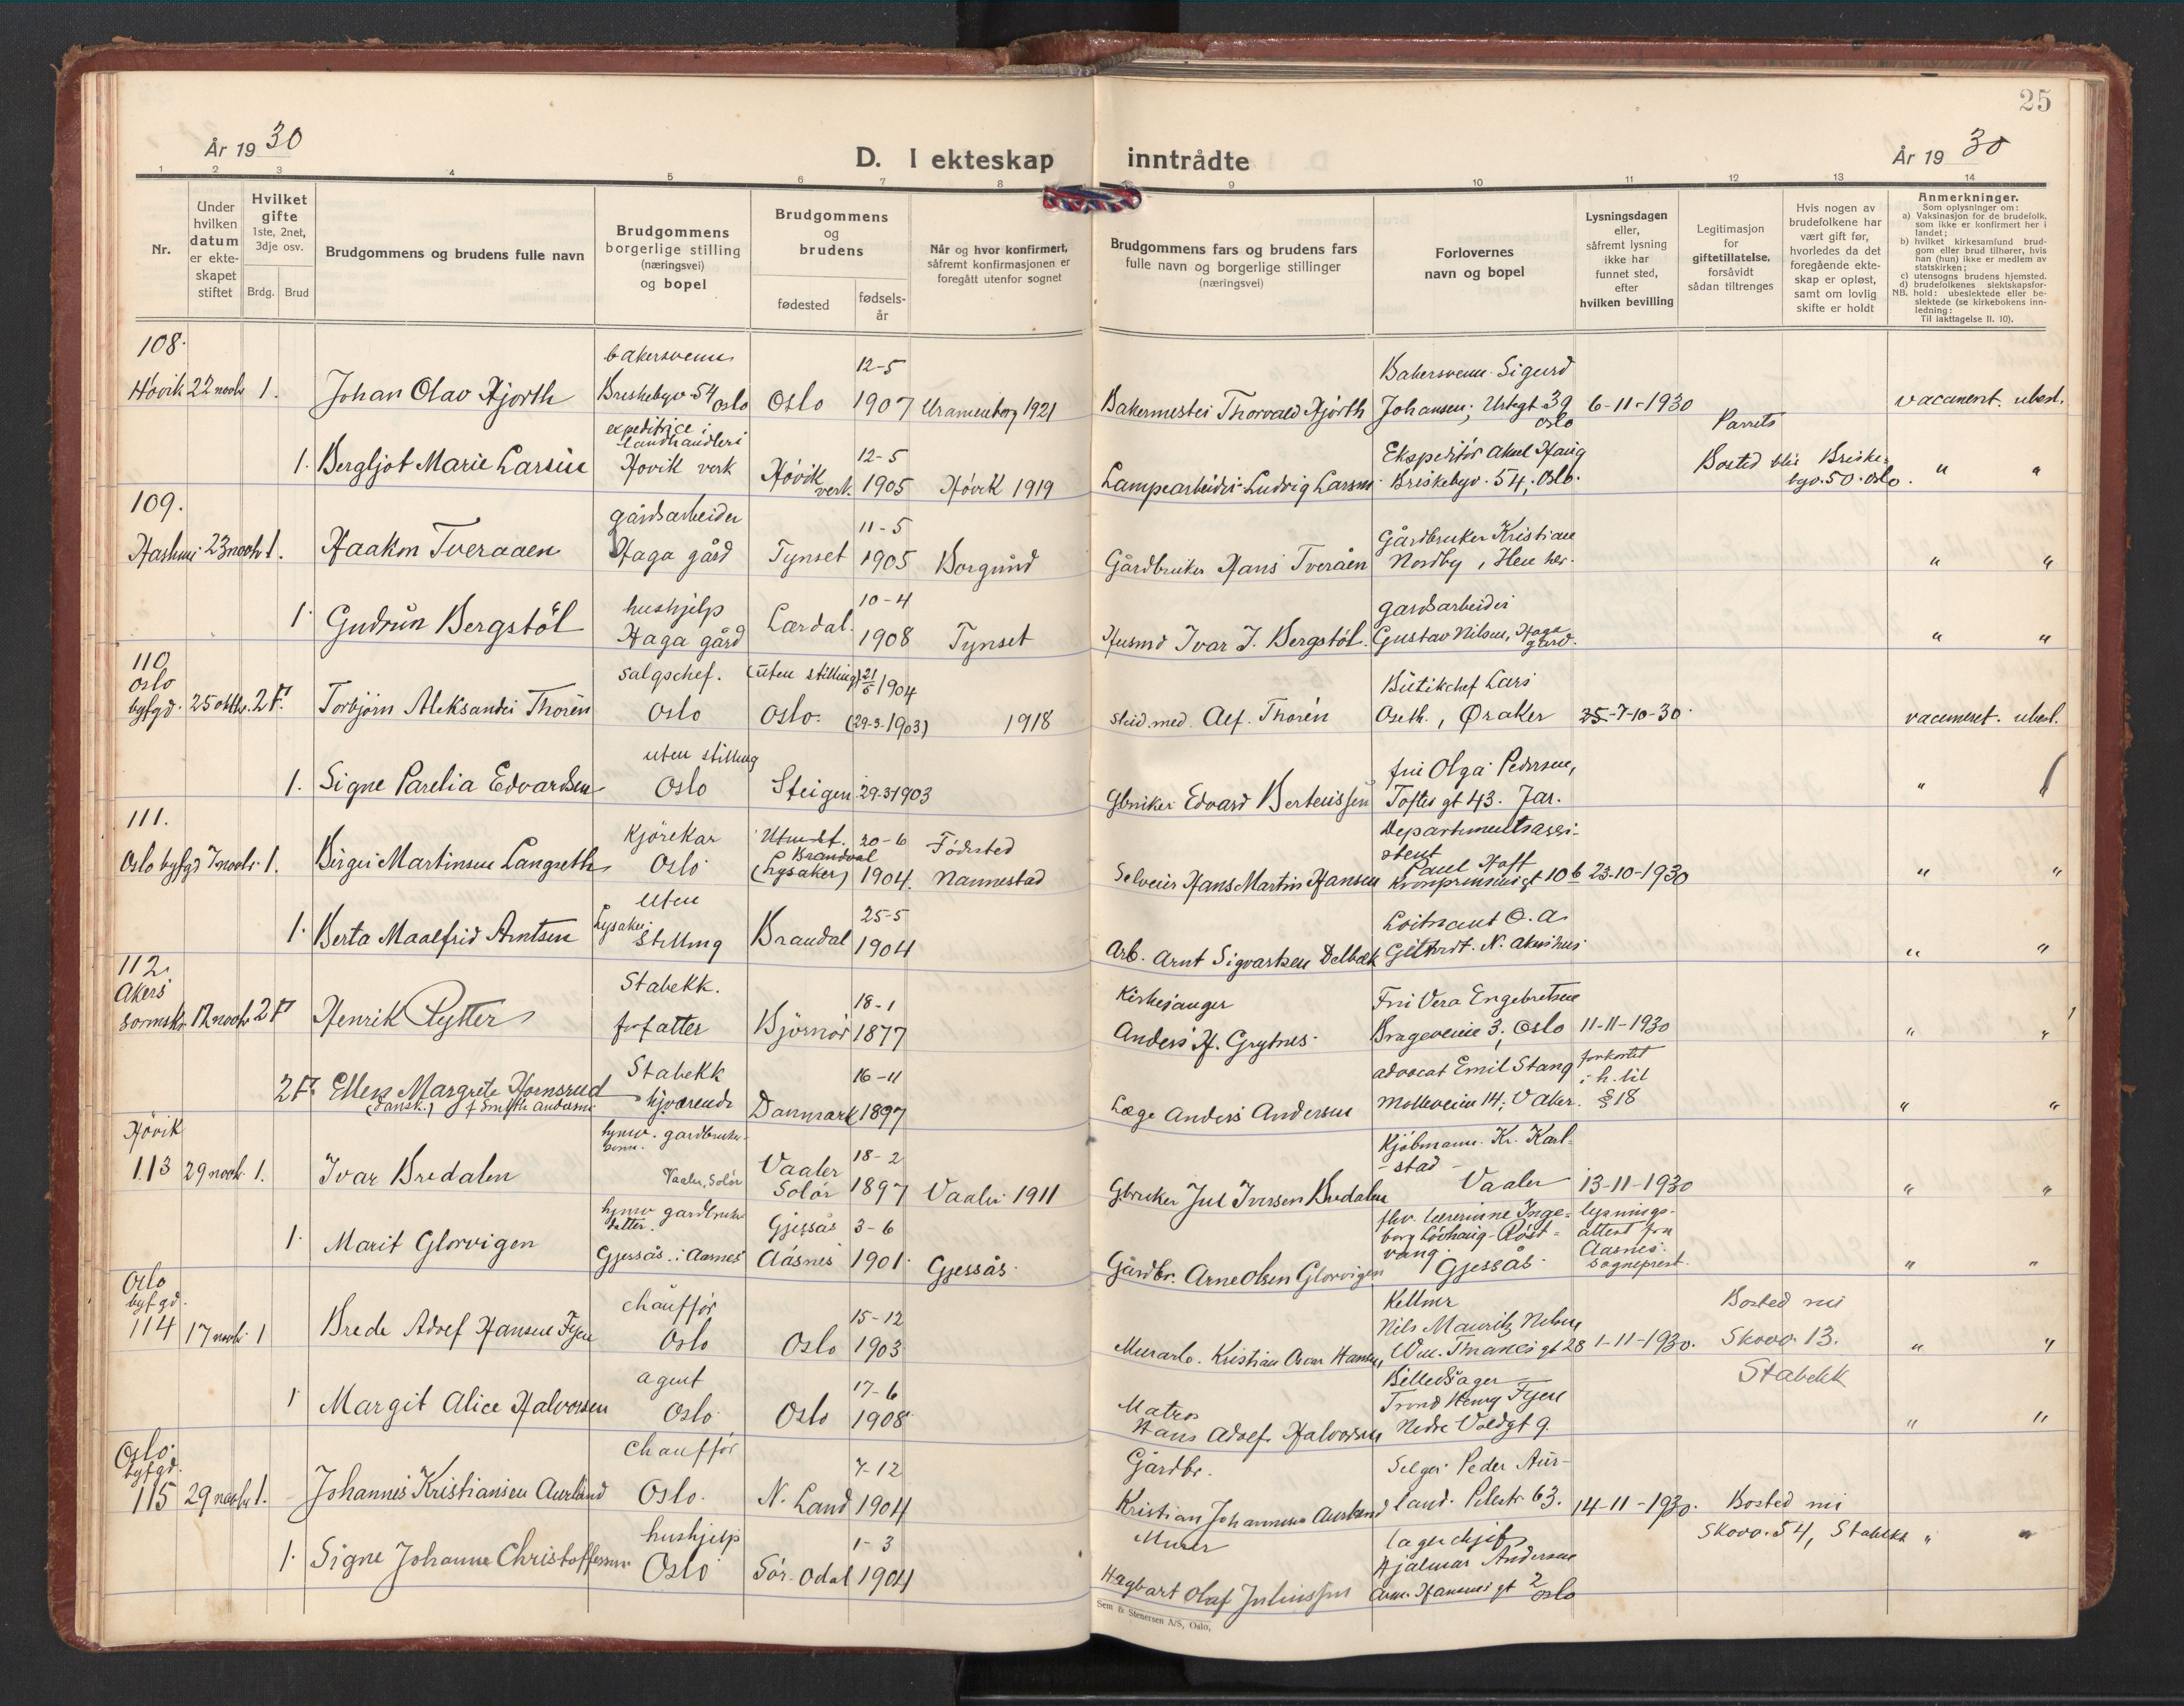 25
År 1930
D. I ekteskap inntrådte
År 1930
1 2 3 4 5 6 7 8 9 10 11 12 13 14
Nr.
Under hvilken datum er ekteskapet stiftet
Hvilket gifte 1ste, 2net, 3dje osv.
Brdg. Brud
Brudgommens og brudens fulle navn
Brudgommens borgerlige stilling (næringsvei) og bopel
Brudgommens og brudens
fødested
fødselsår
Når og hvor konfirmert, såfremt konfirmasjonen er foregått utenfor sognet
Brudgommens fars og brudens fars fulle navn og borgerlige stillinger (næringsvei)
Forlovernes navn og bopel
Lysningsdagen eller, såfremt lysning ikke har funnet sted, efter hvilken bevilling
Legitimasjon for giftetillatelse, forsåvidt sådan tiltrenges
Hvis nogen av brudefolkene har vært gift før, hvorledes da det foregående ekteskap er opløst, samt om lovlig skifte er holdt
Anmerkninger.
Som oplysninger om:
a) Vaksinasjon for de brudefolk, som ikke er konfirmert her i landet;
b) hvilket kirkesamfund brudgom eller brud tilhører, hvis han (hun) ikke er medlem av statskirken;
c) utensogns brudens hjemsted.
d) brudefolkenes slektskapsforhold: ubeslektede eller beslektede (se kirkebokens innledning:
NB. Til iakttagelse II. 10).
108.
Høvik 22 novbr 1. Johan Olav Hjorth
bakersvenn
Briskebyv 54 Oslo
Oslo
12-5
1907
Uranienborg 1921
Bakermester Thorvald Hjorth
Bakersvenn Sigurd
Johansen, Urtegt 39
Oslo
6-11-1930
vaccinert. ubesl.
1. Bergljot Marie Larsen
expeditrice i
landhandleri
Høvik verk
Høvik verk
12-5
1905
Høvik 1919
Lampearbeider Ludvig Larsen
Ekspeditør Aksel Haug
Briskebyv. 54, Oslo.
Bosted blir Briskebyv. 50. Oslo.
" "
109.
Haslum 23 novbr 1. Haakon Tveraaen
gårdsarbeider
Haga gård
Tynset
11-5
1905
Borgund
Gårdbruker Hans Tveråen
Gårdbruker Kristian
Nordby, Hen her.
" "
1. Gudrun Bergstöl
hushjelp
Haga gård
Lærdal.
10-4
1908
Tynset
Husmd Ivar J. Bergstöl.
gardsarbeider
Gustav Nilsen, Haga
gård.
" "
110
Oslo
byfgd. 25 oktbr. 2 F. Torbjørn Aleksander Thorén
salgschef. (uten stilling)
Oslo
Oslo.
21/5 1904
(29-3-1903)
1918
stud. med. Alf. Thorén
Butikchef Lars
Oseth, Øraker
25-7-10-30.
vaccineret. ubesl.
1. Signe Parelia Edvardsen
uten stilling
Oslo
Steigen
29-3 1903
Gbruker Edvard Berteussen
fru Olga Pedersen,
Toftes gt 43. Jar.
"
111.
Oslo byfgd 7 novbr. 1. Birger Martinsen Langseth
Kjörekar
Oslo
Brandval
(Lysaker)
20-6
1904.
Födested
Nannestad
Selveier Hans Martin Hansen
Departementsassistent
Paul Hoff
Kronprinsensgt 10 b
23-10-1930
" "
1. Berta Maalfrid Arntsen
Uten
Lysaker stilling
Brandal
25-5
1904
Arb. Arnt Sigvartsen Delbæk
Loitnant O. A.
N. Akershus
" "
112.
Akers
17 novbr 2 F Henrik Rytter
Stabekk.
forfatter
Björnör
18-1
1877
Kirkesanger
Anders H. Grytnes.
Fru Vera Engebretsen
Brageveien 3, Oslo
11-11-1930
" "
2 F. Ellen Margrete Hornsrud
(dansk.) f. Smith Andersen
Stabekk
hjværende
Danmark
16-11
1897
Læge Anders Andersen
advocat Emil Stang
Molleveien 14, Vaker.
forkortet
i h. til
§ 18
" "
Høvik
113 29 novb. 1. Ivar Bredalen
hjemv. gardbruker-
sönn.
Vaaler, Solör
Vaaler
Solör
18-2
1897
Vaaler 1911
Gbruker Jul Iversen Bredalen
Kjöbmann. Kr. Karlstad
Vaaler
13-11-1930
" "
1. Marit Glorvigen
hjemv gardbruker
datter.
Gjessås i Aasnes
Gjessås
Aasnes
3-6
1901.
Gjessås.
Gårdbr. Arne Olsen Glorvigen
fhv. lærerinne Ingeborg Lövhaug-Röstvang.
Gjessås.
lysnings-
attest fra
Aasnes.
sogneprest.
" "
Oslo
byfgd.
114 17 novbr 1 Brede Adolf Hansen Fjere
chauffør
Oslo
Oslo
15-12
1903
Murarb. Kristian Oscar Hansen,
Kellner
Nils Mauritz Nilsen
Wm. Thranes gt 28
1-11-1930.
Bosted nu
Skovv. 13.
Stabekk
" "
1 Margit Alice Halvorsen
agent
Oslo.
Oslo
17-6
1908.
Matros
Hans Adolf Halvorsen
Trond Henry Fjere
Nedre Voldgt 9.
" "
Oslo.
byfgd.
115 29 novbr 1. Johannes Kristiansen Aurland
chauffør
Oslo.
N. Land
7-12
1904
Gårdbr.
Kristian Johannesen Aurland
Selger Peder Aurland. Pilestr. 63.
14-11-1930.
Bosted nu
Skovv. 54, Stabekk
" "
1. Signe Johanne Christoffersen
hushjelp
Oslo
Sör-Odal
1-3
1904
Murer
Hagbart Olaf Juliussen
lagerchjef
Hjalmar Andersen
Arne Hansens gt 2
Oslo
Sem & Stenersen A/S, Oslo.